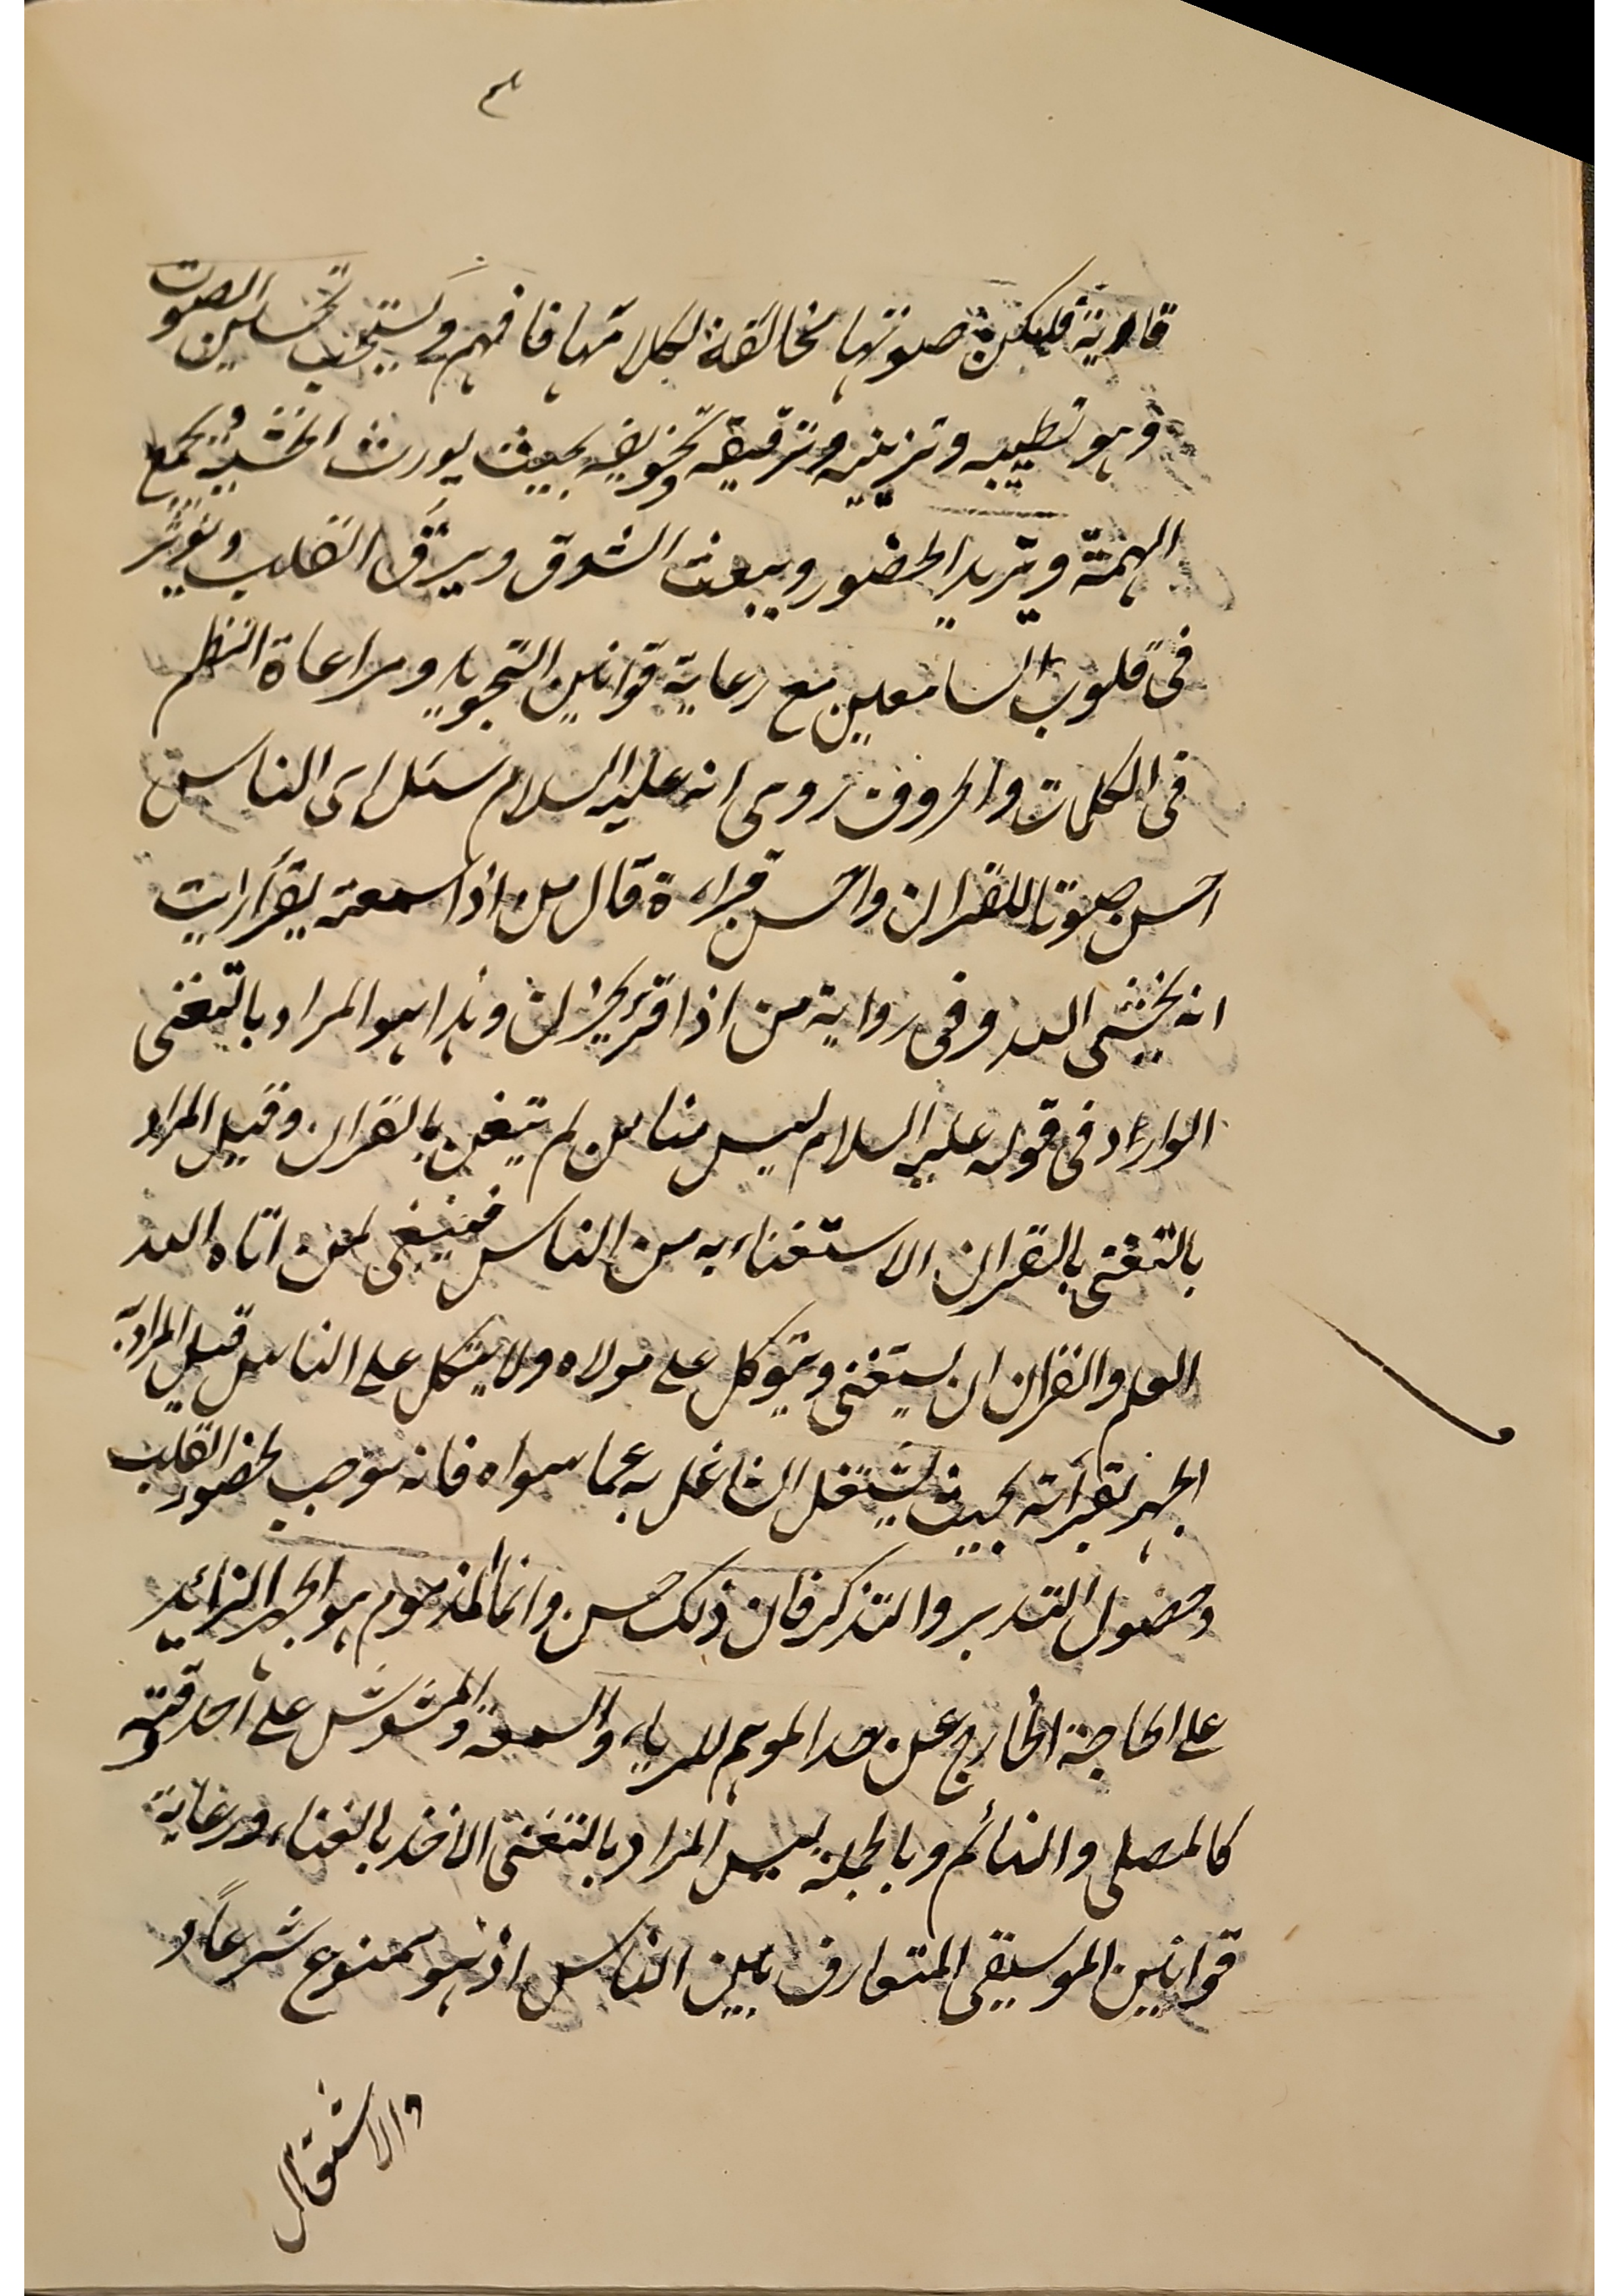 ٣
قارية فليكن صوتها مخالفة لكلامها فافهم ويستحب تحسين الصوت
وهو تطييبه وتزيينه وترقيقه وتحزينه بحيث يورث الخشية ويجمع
الهمة ويزيد الحضور ويبعث الشوق ويرق القلب ويؤثر
فى قلوب السامعين مع رعاية قوانين التجويد ومراعاة النظم
فى الكلمات والحروف روى انه عليه السلام سئل اى الناس
احسن صوتا للقران واحسن قراءة قال من اذا سمعته يقرأ رايت
انه يخشى الله وفى رواية من اذا قرء يحزن وهذا هو المراد بالتغنى
الوارد فى قوله عليه السلام ليس منا من لم يتغن بالقران وقيل المراد
بالتغنى بالقران الاستغناء به من الناس فينبغى لمن اتاه الله
العلم والقران ان يستغنى ويتوكل على مولاه ولا يتكل على الناس قيل المراد به
الجهر بقرأته بحيث يشتغل الشاغل به عما سواه فانه موجب لحضور القلب
وحصول التدبر والتذكر فان ذلك حسن وانما المذموم هو الجهر الزائد
على الحاجة الخارج عن الحد الموهم للرياء والسمعة والمشوش على احد وقته
كالمصلى والنائم وبالجملة ليس المراد بالتغنى الاخذ بالغناء ورعاية
قوانين الموسيقى المتعارف بين الناس اذ هو ممنوع شرعاً و
والاشتغال